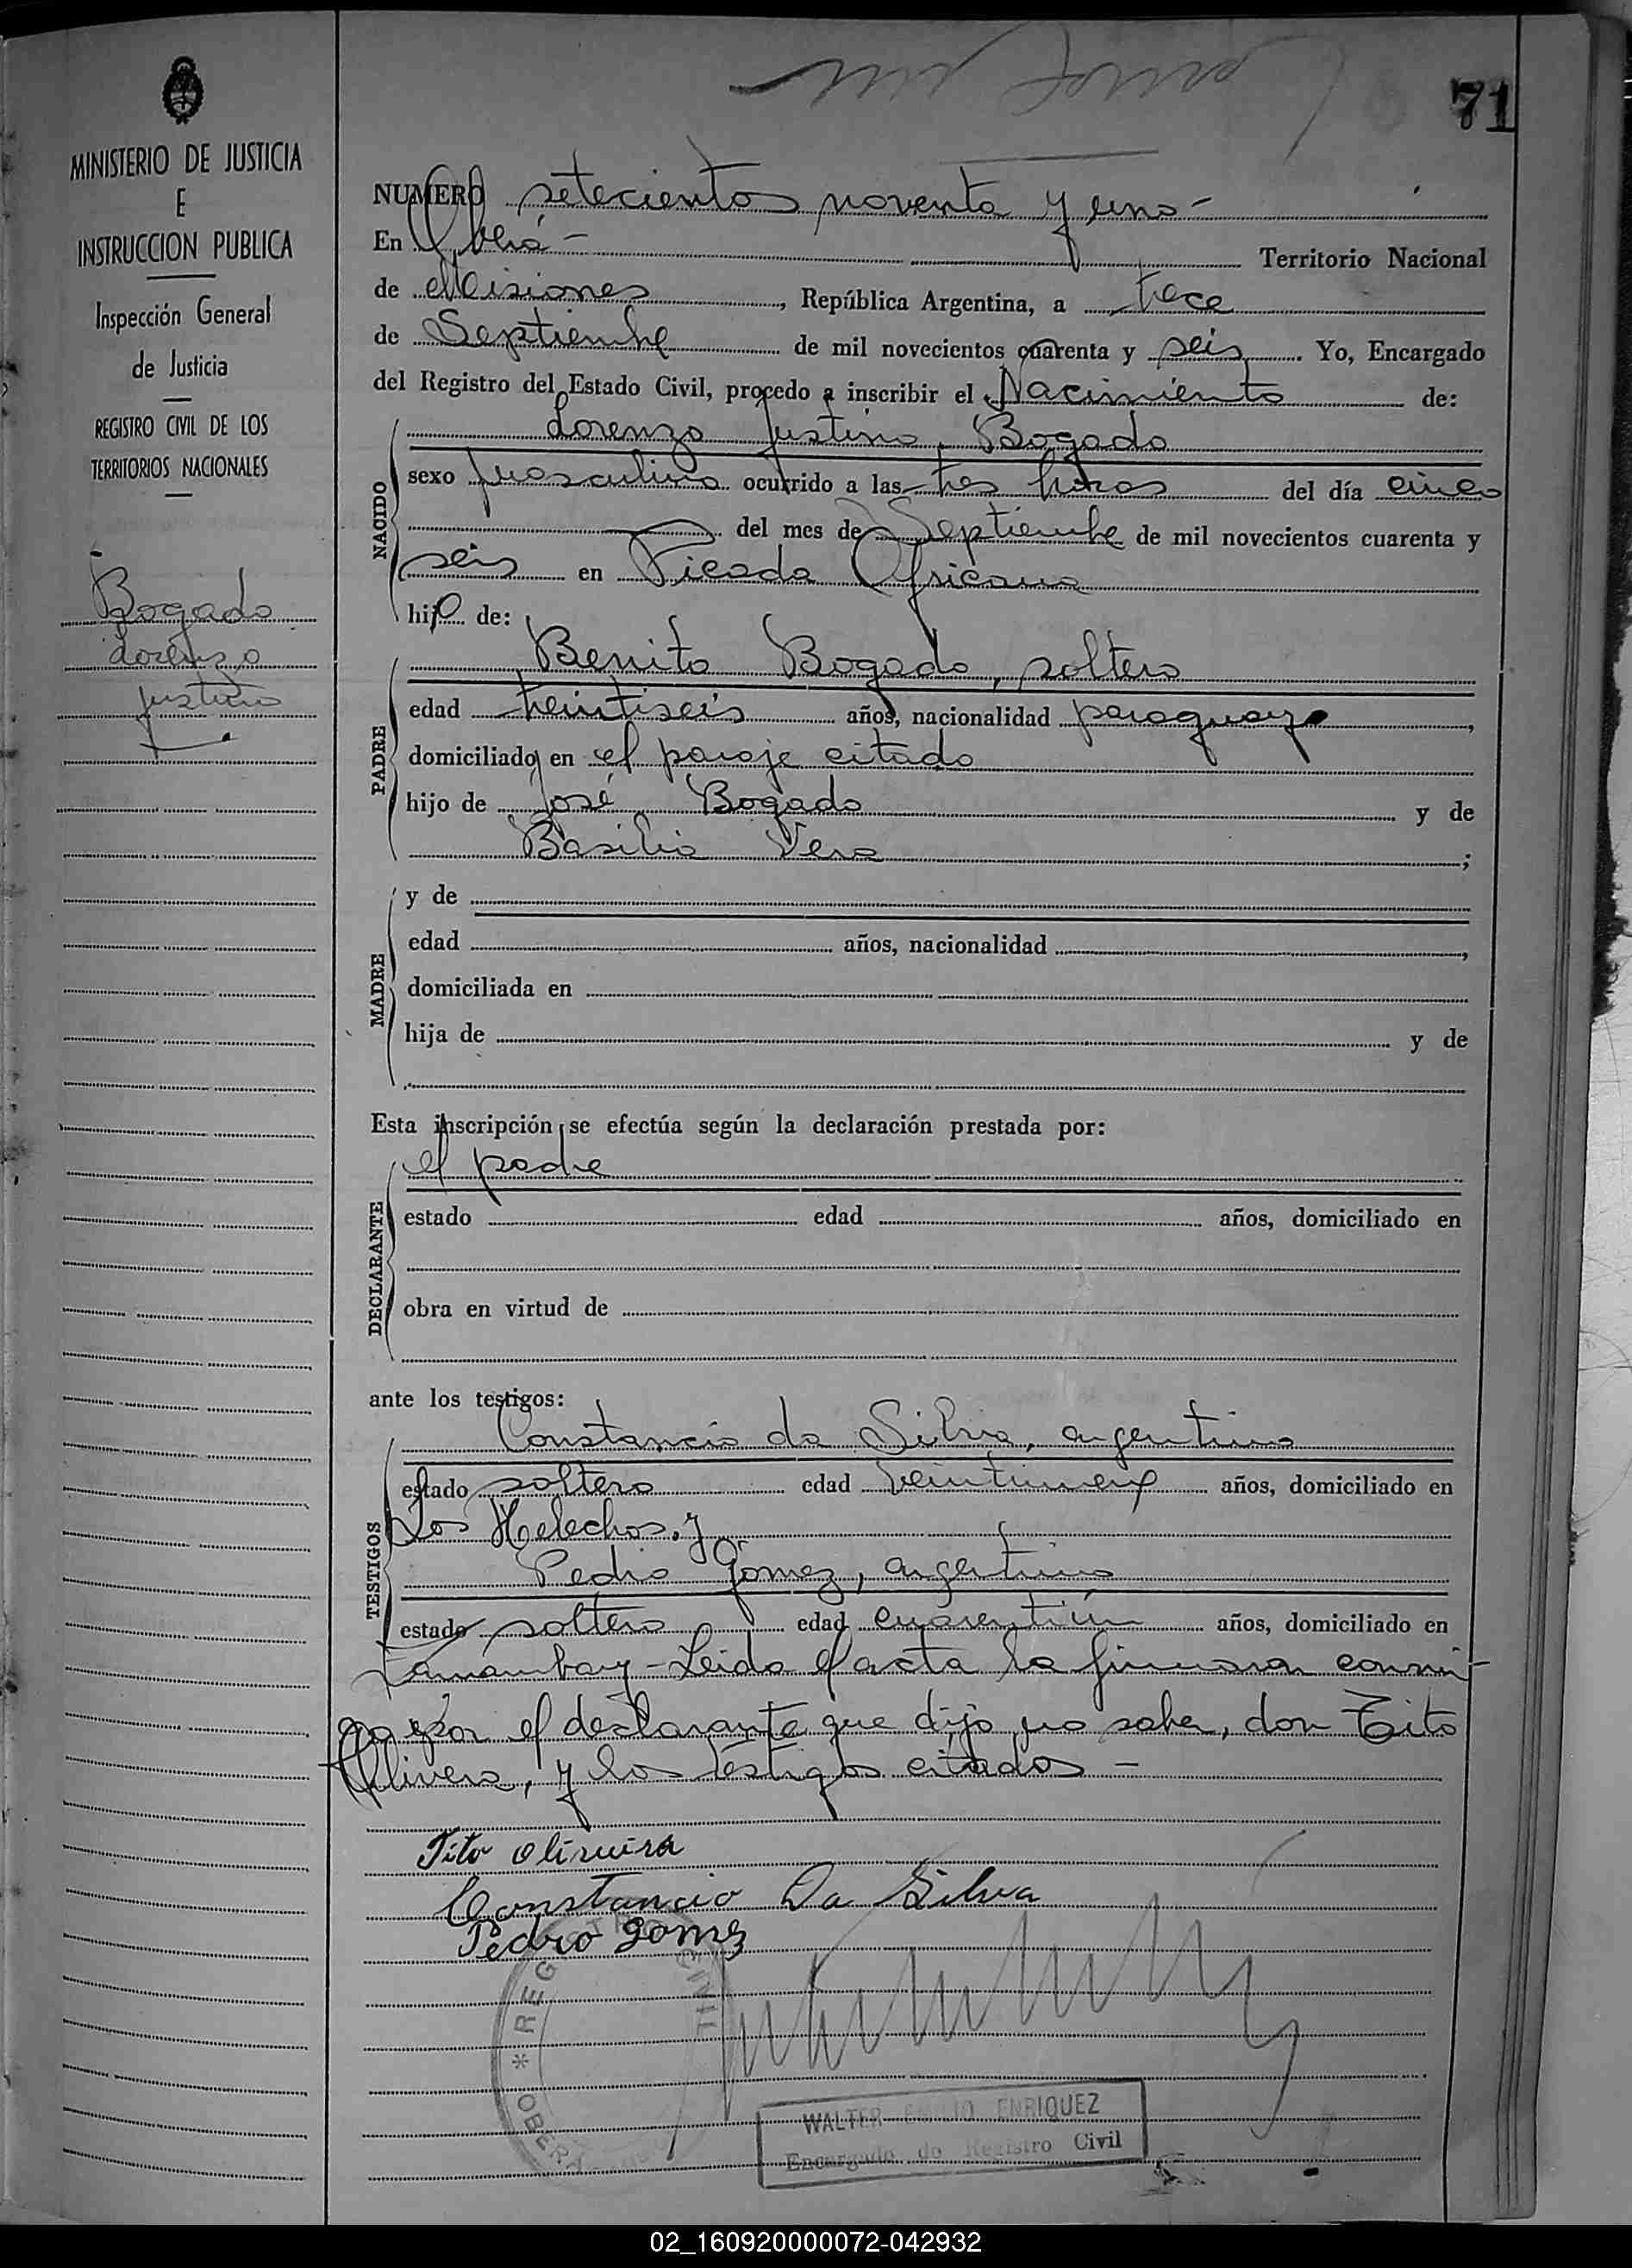 71
MINISTERIO DE JUSTICIA
E
INSTRUCCION PUBLICA
Inspección General
de Justicia
REGISTRO CIVIL DE LOS
TERRITORIOS NACIONALES
Bogado
Lorenzo
Justino
NUMERO setecientos noventa y uno-
En Oberá- Territorio Nacional
de Misiones, República Argentina, a trece
de Septiembre de mil novecientos cuarenta y seis. Yo, Encargado
del Registro del Estado Civil, procedo a inscribir el Nacimiento de:
NACIDO
Lorenzo Justino Bogado
sexo masculino ocurrido a las tres horas del día cinco
del mes de Septiembre de mil novecientos cuarenta y
seis en Picada Africana
hijo de:
PADRE
Benito Bogado, soltero
edad treintiseis años, nacionalidad paraguayo,
domiciliado en el paraje citado
hijo de José Bogado y de
Basilia Vera;
MADRE
y de
edad años, nacionalidad,
domiciliada en
hija de y de
Esta inscripción se efectúa según la declaración prestada por:
DECLARANTE
el padre
estado edad años, domiciliado en
obra en virtud de
ante los testigos:
TESTIGOS
Constancio da Silva, argentino
estado soltero edad veintinueve años, domiciliado en
Los Helechos, y
Pedro Gomez, argentino
estado soltero edad cuarentiún años, domiciliado en
Yamambay-Leida el acta la firmaron conmi-
go por el declarante que dijo no saber, don Tito
Olivera, y los testigos citados-
Tito oliveira
Constancio Da Silva
Pedro Gomez
REGISTRO CIVIL
* OBERA
WALTER EMILIO ENRIQUEZ
Encargado de Registro Civil
02_160920000072-042932